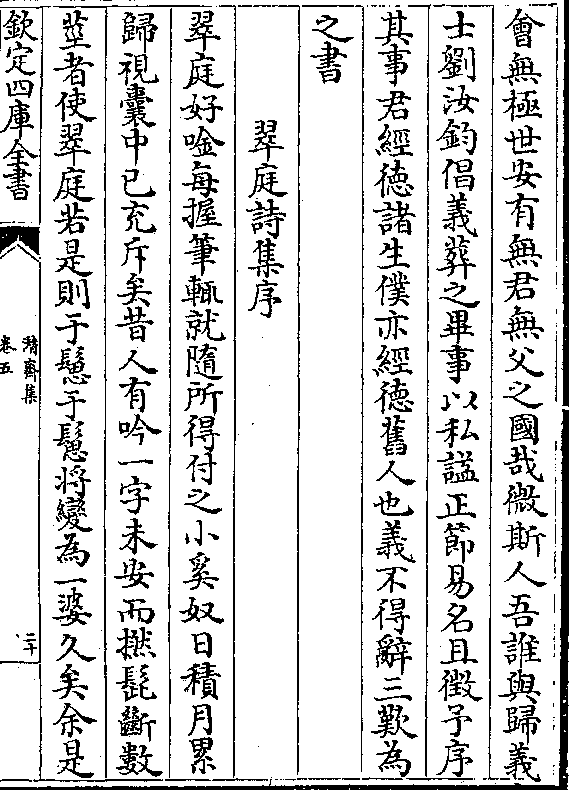 會無極世安有無君無父之國哉微斯人吾誰與歸義
士劉汝鈞倡義葬之畢事以私謚正節易名且徵予序
其事君經徳諸生僕亦經徳舊人也義不得辭三歎為
之書
翠庭詩集序
翠庭好唫每握筆輒就隨所得付之小奚奴日積月累
歸視囊中已充斥矣昔人有吟一字未安而撚髭斷數
莖者使翠庭若是則于鬓于鬓将變為一婆久矣余是
欽定四庫全書
潜齋集
卷五
二十